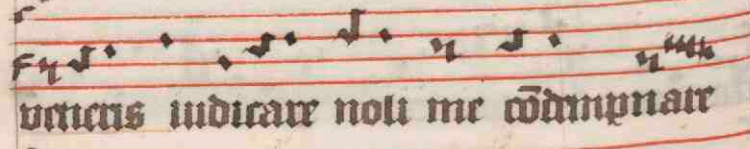 veneris iudicare noli me cōdempnare